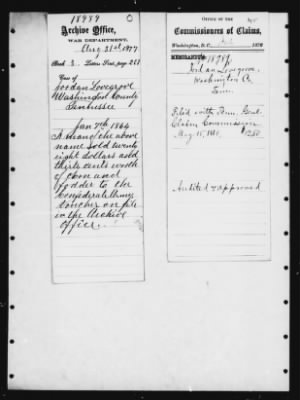 18989
Archive Office,
WAR DEPARTMENT,
Aug 31st 1877
Book 3. Letters Sent, page 221
Case of
Jordan Lovegrove
Washington County
Tennessee
Jan 7th 1864
the above
name sold twenty
eight dollars and
thirty cents worth
of corn and
fodder to the
Confederate Army
voucher on file
in the Archive
Office.
OFFICE OF THE
Commissioners of Claims,
Washington, D.C., 1870
MEMORANDUM
Jordan Lovegrove,
Washington Co
Tenn.
Filed with
Claims Commission
May 15,